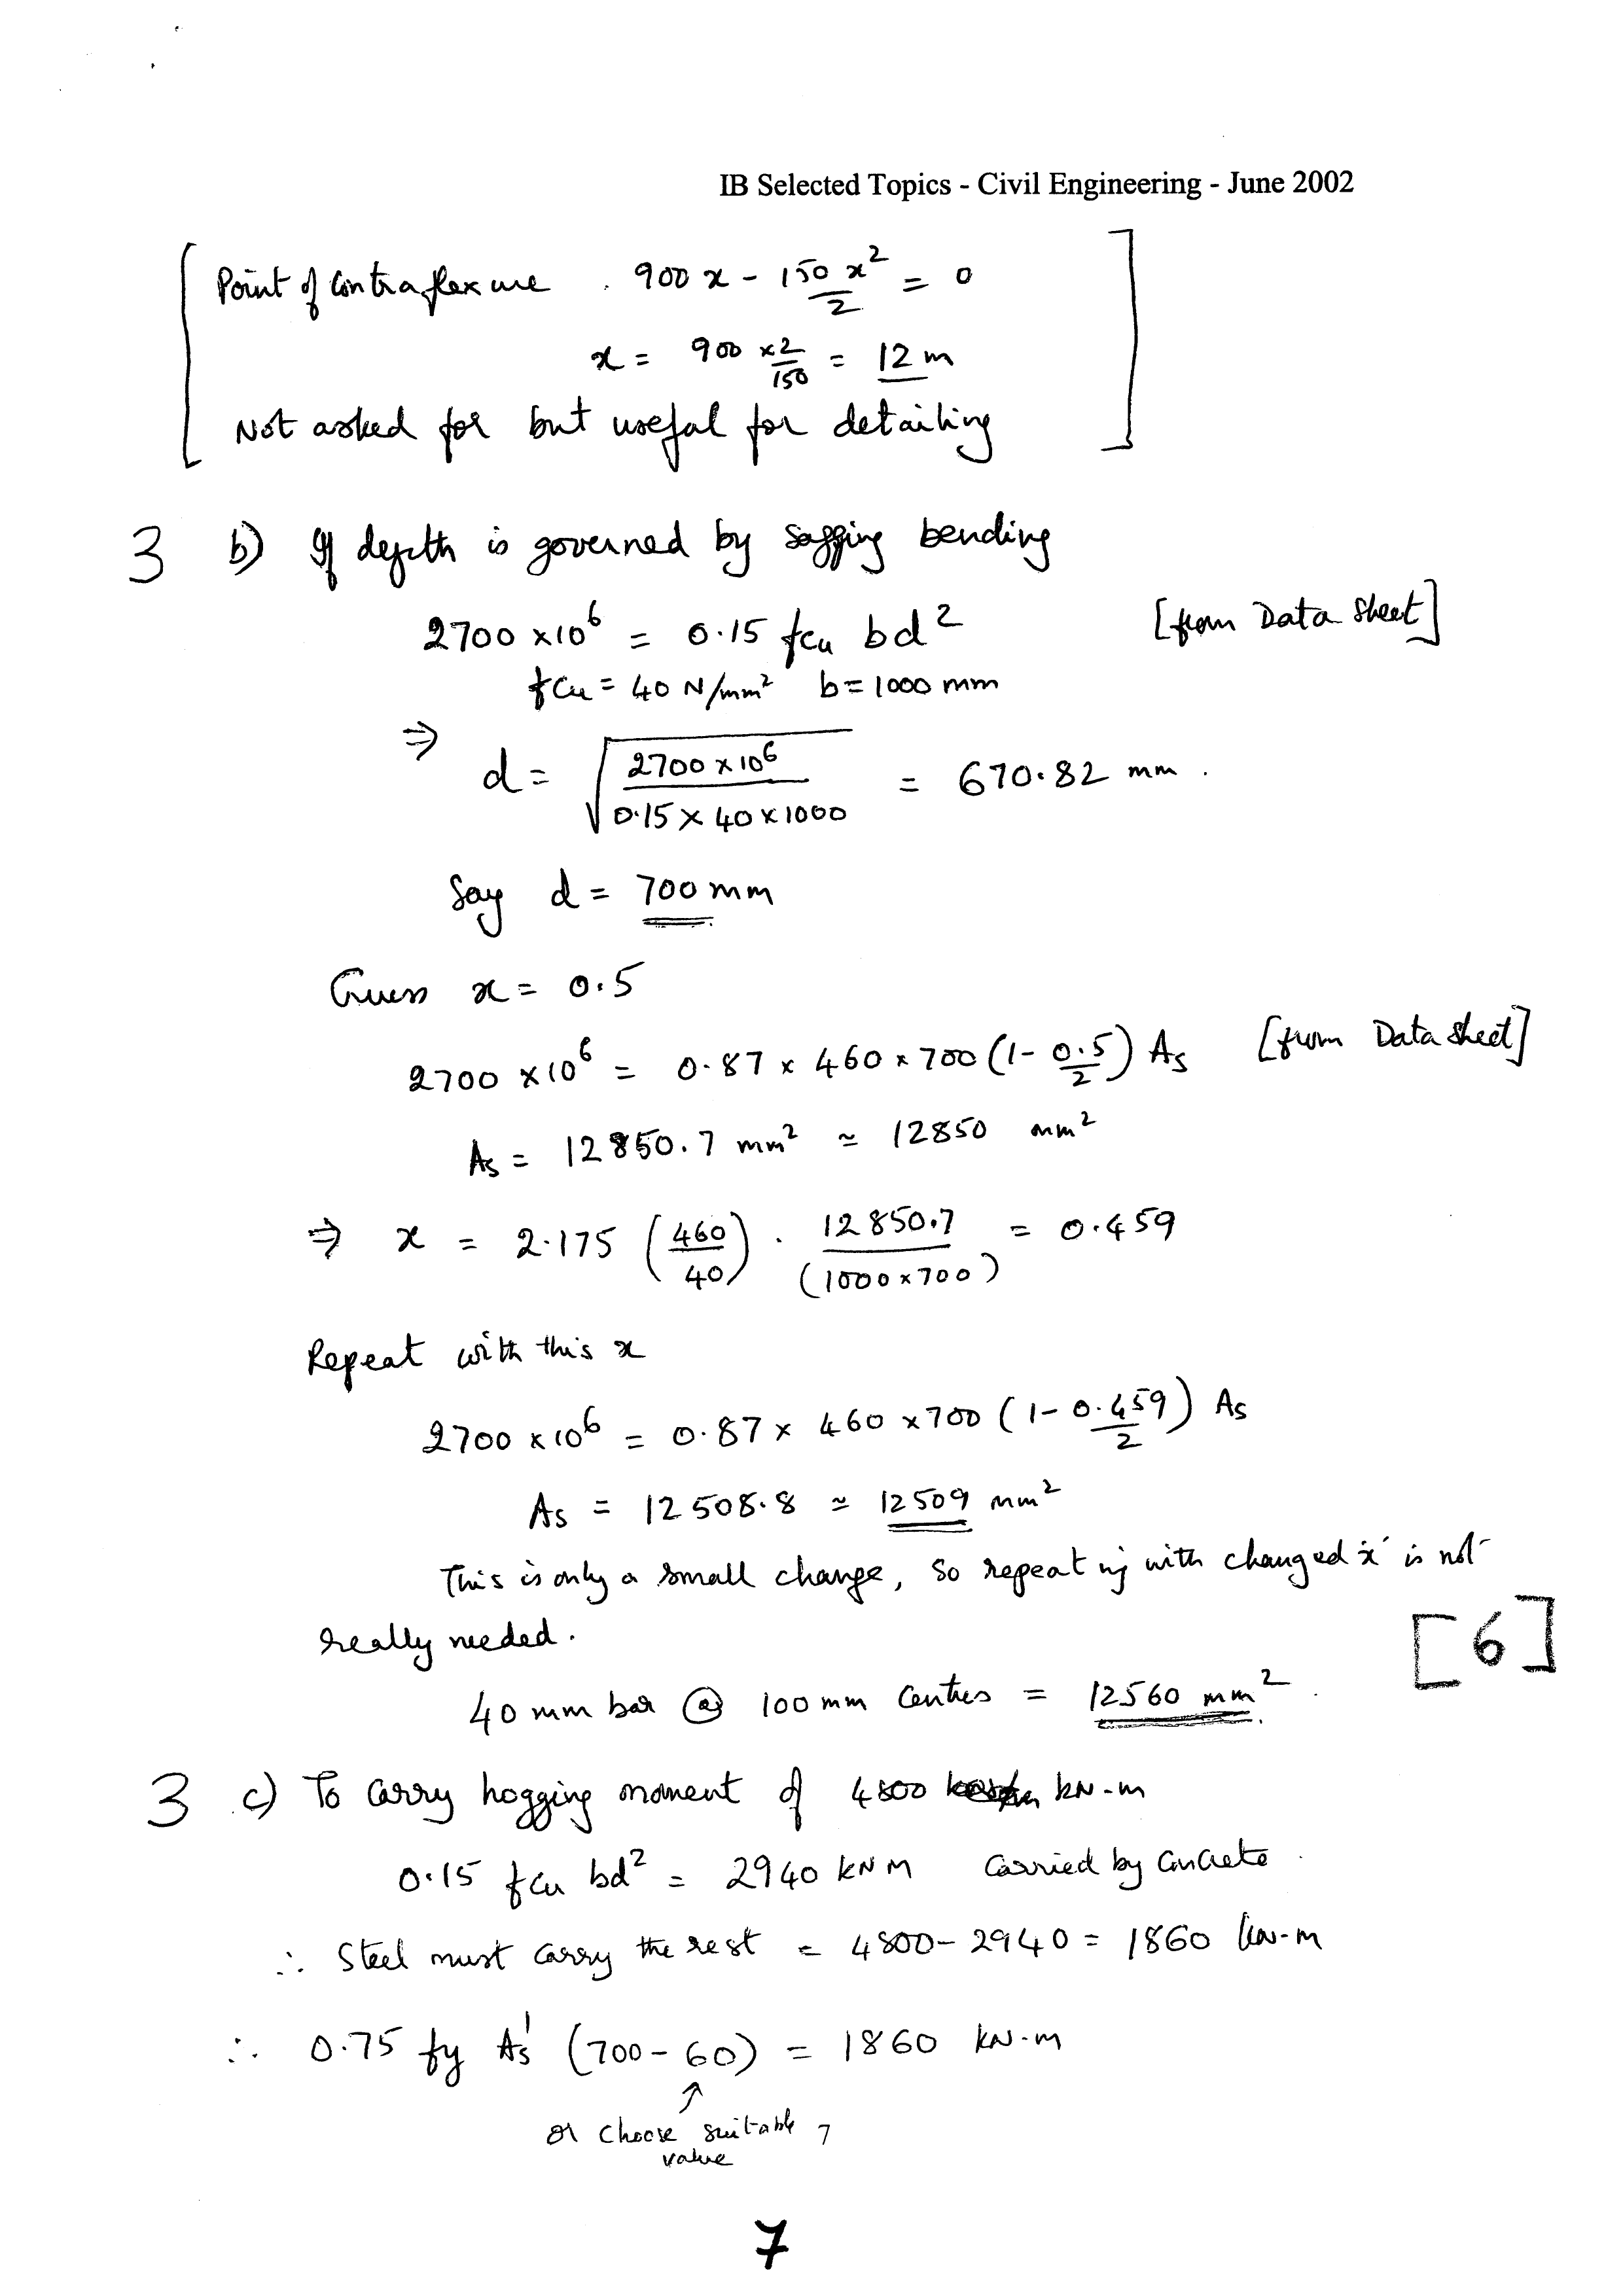 IB Selected Topics - Civil Engineering - June 2002
Point of Contraflexure . 900 x - 150 x²/2 = 0
x = 900 × 2/150 = 12 m
Not asked for but useful for detailing
3 b) If depth is governed by sagging bending
2700 × 10⁶ = 0.15 fcu bd² [from Data Sheet]
fcu = 40 N/mm² b = 1000 mm
⇒ d = √(2700 × 10⁶ / 0.15 × 40 × 1000) = 670.82 mm .
Say d = 700 mm
Guess x = 0.5
2700 × 10⁶ = 0.87 × 460 × 700 (1 - 0.5/2) As [from Data sheet]
As = 12850.7 mm² ≃ 12850 mm²
⇒ x = 2.175 (460/40) . 12850.7/(1000 × 700) = 0.459
Repeat with this x
2700 × 10⁶ = 0.87 × 460 × 700 (1 - 0.459/2) As
As = 12508.8 ≃ 12509 mm²
This is only a small change, so repeating with changed 'x' is not
really needed.
[6]
40 mm bar @ 100 mm Centres = 12560 mm² .
3 c) To carry hogging moment of 4800 kN-m
0.15 fcu bd² = 2940 kNm Carried by Concrete .
∴ Steel must carry the rest = 4800 - 2940 = 1860 kN-m
∴ 0.75 fy As' (700 - 60) = 1860 kN-m
↑
or choose suitable
value
7